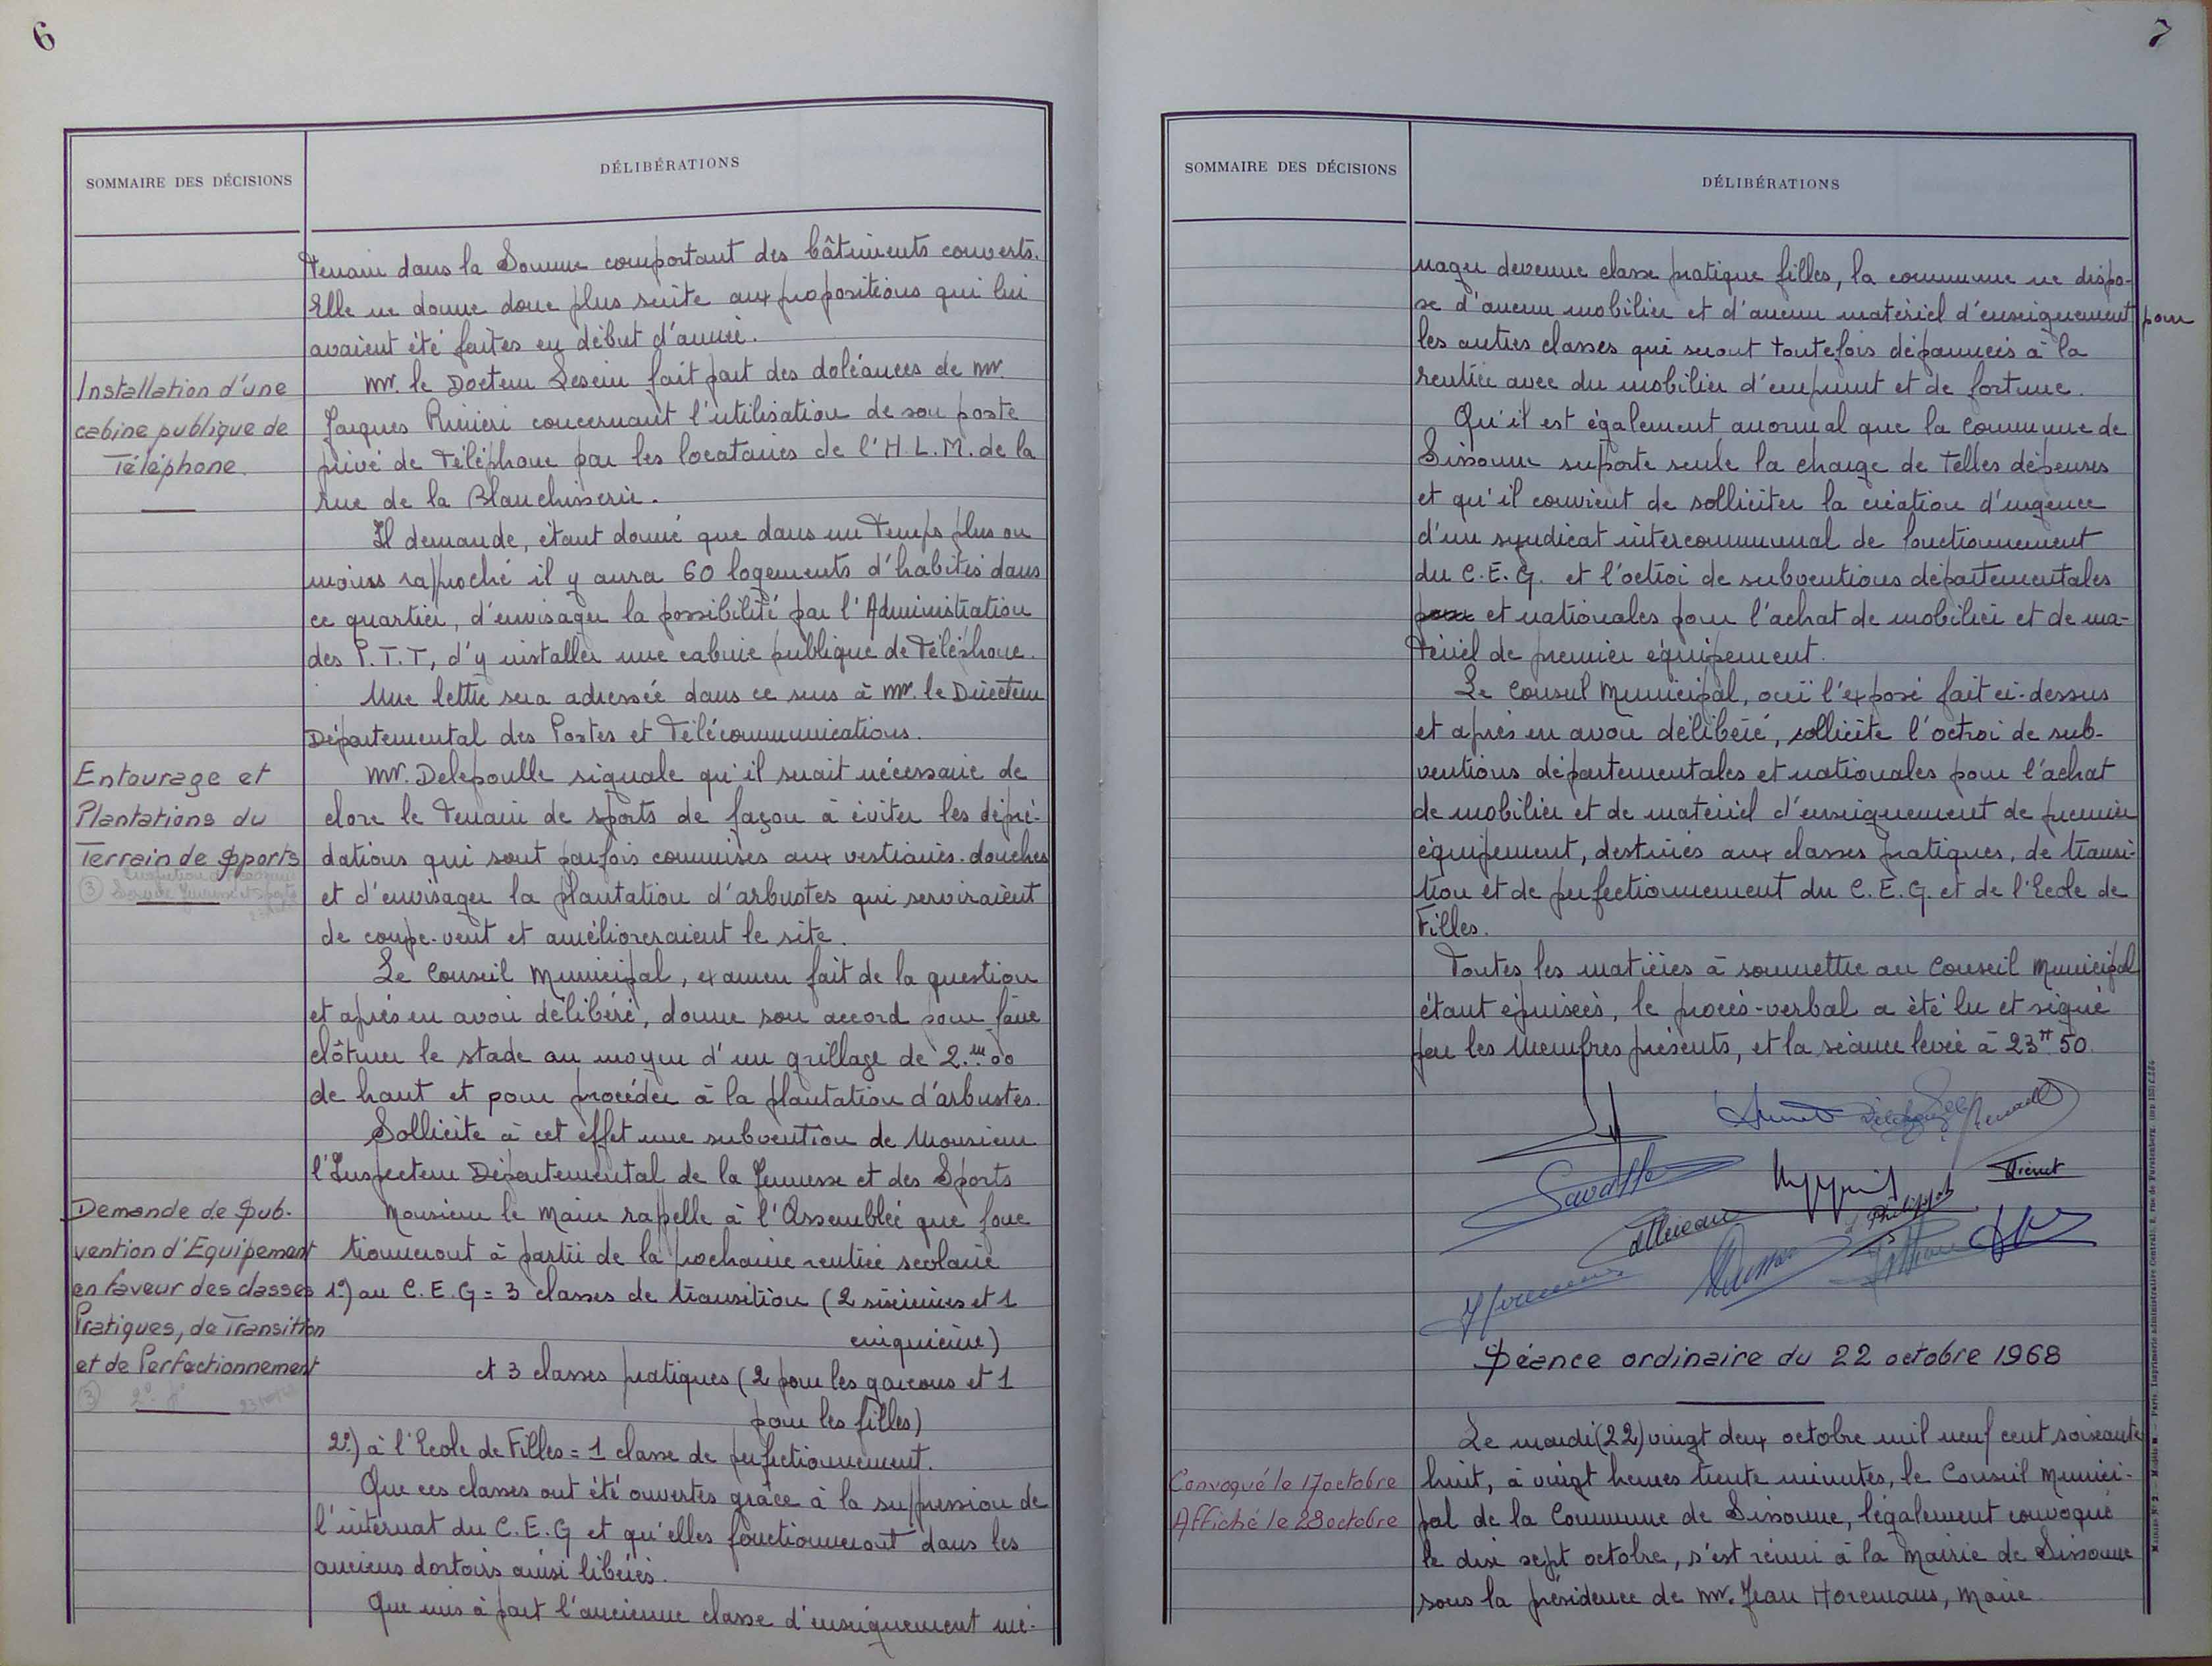 6
SOMMAIRE DES DÉCISIONS
DÉLIBÉRATIONS
terrain dans la Somme comportant des bâtiments couverts.
Elle ne donne donc plus suite aux propositions qui lui
avaient été faites en début d'année.
Installation d'une
cabine publique de
Téléphone.
Mr. le Docteur Lesein fait part des doléances de Mr.
Jacques Rivièri concernant l'utilisation de son poste
privé de Téléphone par les locataires de l'H.L.M. de la
rue de la Blanchisserie.
Il demande, étant donné que dans un temps plus ou
moins raproché il y aura 60 logements d'habités dans
ce quartier, d'envisager la possibilité par l'Administration
des P.T.T, d'y installer une cabine publique de Téléphone.
Une lettre sera adressée dans ce sens à Mr. le Directeur
Départemental des Postes et Télécommunications.
Entourage et
Plantations du
Terrain de Sports
③ Service Jeunesse et Sports
Mr. Delepoulle signale qu'il serait nécessaire de
clore le terrain de sports de façon à éviter les dépré-
dations qui sont parfois commises aux vestiaires-douches
et d'envisager la plantation d'arbustes qui serviraient
de coupe-vent et amélioreraient le site.
Le Conseil Municipal, examen fait de la question
et après en avoir délibéré, donne son accord pour faire
clôturer le stade au moyen d'un grillage de 2.m00
de haut et pour procéder à la plantation d'arbustes.
Sollicite à cet effet une subvention de Monsieur
l'Inspecteur Départemental de la Jeunesse et des Sports
Demande de Sub-
vention d'Equipement
en faveur des classes
Pratiques, de Transition
et de Perfectionnement
③ 2°
Monsieur le Maire rapelle à l'Assemblée que fonc
tionneront à partir de la prochaine rentrée scolaire
1°) au C.E.G = 3 classes de transition (2 sixièmes et 1
cinquième)
et 3 classes pratiques (2 pour les garcons et 1
pour les filles)
2°) à l'Ecole de Filles = 1 classe de perfectionnement.
Que ces classes ont été ouvertes grâce à la suppression de
l'internat du C.E.G et qu'elles fonctionneront dans les
anciens dortoirs ainsi libérés.
Que mis à part l'ancienne classe d'enseignement mé-
7
SOMMAIRE DES DÉCISIONS
DÉLIBÉRATIONS
nager devenue classe pratique filles, la commune ne dispo-
se d'aucun mobilier et d'aucun matériel d'enseignement pour
les autres classes qui seront toutefois dépannées à la
rentrée avec du mobilier d'emprunt et de fortune.
Qu'il est également anormal que la Commune de
Sissonne suporte seule la charge de telles dépenses
et qu'il convient de solliciter la création d'urgence
d'un syndicat intercommunal de fonctionnement
du C.E.G. et l'octroi de subventions départementales
pour et nationales pour l'achat de mobilier et de ma-
tériel de premier équipement.
Le Conseil Municipal, ouï l'exposé fait ci-dessus
et après en avoir délibéré, sollicite l'octroi de sub-
ventions départementales et nationales pour l'achat
de mobilier et de matériel d'enseignement de premier
équipement, destinés aux classes pratiques, de transi-
tion et de perfectionnement du C.E.G. et de l'Ecole de
Filles.
Toutes les matières à soumettre au Conseil Municipal
étant épuisées, le procès-verbal a été lu et signé
par les Membres présents, et la séance levée à 23H.50.
Savatte
Trévet
Philippot
Séance ordinaire du 22 octobre 1968
Convoqué le 17 octobre
Affiché le 28 octobre
Le mardi (22) vingt deux octobre mil neuf cent soixante
huit, à vingt heures trente minutes, le Conseil Munici-
pal de la Commune de Sissonne, légalement convoqué
le dix sept octobre, s'est réuni à la Mairie de Sissonne
sous la présidence de Mr. Jean Horemans, Maire